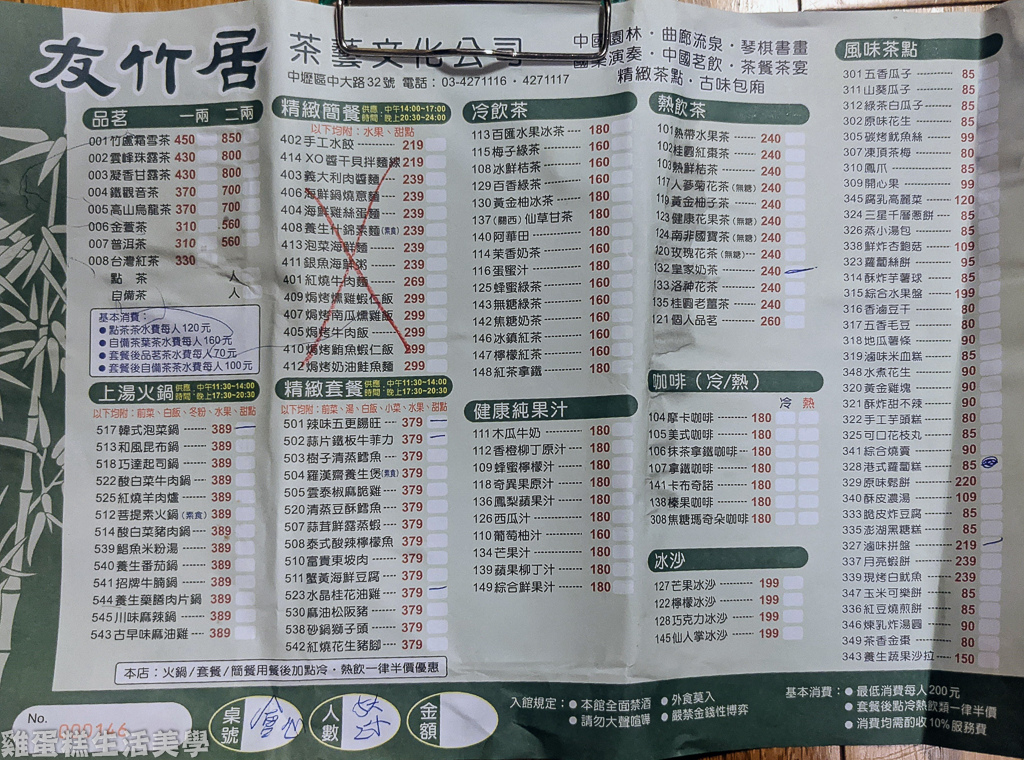 友竹居 茶藝文化公司
中壢區中大路32號 電話：03-4271116・4271117
中國園林・曲廊流泉・琴棋書畫
國樂演奏・中國茗飲・茶餐茶宴
精緻茶點・古味包廂
品茗 一兩 二兩
001 竹廬霜雪茶 450 850
002 雲峰珠露茶 430 800
003 凝香甘露茶 430 800
004 鐵觀音茶 370 700
005 高山烏龍茶 370 700
006 金萱茶 310 560
007 普洱茶 310 560
008 台灣紅茶 330
點茶 人
自備茶 人
基本消費：
●點茶茶水費每人120元
●自備茶葉茶水費每人160元
●套餐後品茗茶水費每人70元
●套餐後自備茶茶水費每人100元
上湯火鍋 供應時間：中午11:30~14:00 晚上17:30~20:30
以下均附：前菜、白飯、冬粉、水果、甜點
517 韓式泡菜鍋 389
513 和風昆布鍋 389
518 巧達起司鍋 389
522 酸白菜牛肉鍋 389
525 紅燒羊肉爐 389
512 菩提素火鍋(素食) 389
514 酸白菜豬肉鍋 389
539 鯧魚米粉湯 389
540 養生番茄鍋 389
541 招牌牛腩鍋 389
544 養生藥膳肉片鍋 389
545 川味麻辣鍋 389
543 古早味麻油雞 389
精緻簡餐 供應時間：中午14:00~17:00 晚上20:30~24:00
以下均附：水果、甜點
402 手工水餃 219
414 XO醬干貝拌麵線 219
403 義大利肉醬麵 239
406 海鮮鍋燒意麵 239
404 海鮮雞絲蛋麵 239
408 養生什錦素麵(素食) 239
413 泡菜海鮮麵 239
411 銀魚海鮮粥 239
401 紅燒牛肉麵 269
409 焗烤燻雞蝦仁飯 299
407 焗烤南瓜燻雞飯 299
405 焗烤牛肉飯 299
410 焗烤鮪魚蝦仁飯 299
412 焗烤奶油鮭魚麵 299
精緻套餐 供應時間：中午11:30~14:00 晚上17:30~20:30
以下均附：前菜、湯、白飯、小菜、水果、甜點
501 辣味五更腸旺 379
502 蒜片鐵板牛菲力 379
503 樹子清蒸鱈魚 379
504 羅漢齋養生煲(素食) 379
505 雲泰椒麻脆雞 379
520 清蒸豆酥鱈魚 379
507 蒜茸鮮露蒸蝦 379
508 泰式酸辣檸檬魚 379
510 富貴東坡肉 379
511 蟹黃海鮮豆腐 379
523 水晶桂花油雞 379
530 麻油松阪豬 379
538 砂鍋獅子頭 379
542 紅燒花生豬腳 379
本店：火鍋/套餐/簡餐用餐後加點冷・熱飲一律半價優惠
冷飲茶
113 百匯水果冰茶 180
115 梅子綠茶 160
108 冰鮮桔茶 180
129 百香綠茶 160
130 黃金柚冰茶 180
137 (關西)仙草甘茶 180
140 阿華田 180
114 茉香奶茶 160
116 蛋蜜汁 180
125 蜂蜜綠茶 160
143 無糖綠茶 160
142 焦糖奶茶 160
146 冰鎮紅茶 160
147 檸檬紅茶 160
148 紅茶拿鐵 180
健康純果汁
111 木瓜牛奶 180
112 香橙柳丁原汁 180
109 蜂蜜檸檬汁 180
118 奇異果原汁 180
136 鳳梨蘋果汁 180
126 西瓜汁 180
110 葡萄柚汁 160
134 芒果汁 180
139 蘋果柳丁汁 180
149 綜合鮮果汁 180
熱飲茶
101 熱帶水果茶 240
102 桂圓紅棗茶 240
103 熱鮮桔茶 240
117 人蔘菊花茶(無糖) 240
119 黃金柚子茶 240
123 健康花果茶(無糖) 240
124 南非國寶茶(無糖) 240
120 玫瑰花茶(無糖) 240
132 皇家奶茶 240
133 洛神花茶 240
135 桂圓老薑茶 240
121 個人品茗 260
咖啡（冷/熱）
冷 熱
104 摩卡咖啡 180
105 美式咖啡 180
106 抹茶拿鐵咖啡 180
107 拿鐵咖啡 180
141 卡布奇諾 180
138 榛果咖啡 180
308 焦糖瑪奇朵咖啡 180
冰沙
127 芒果冰沙 199
122 檸檬冰沙 199
128 巧克力冰沙 199
145 仙人掌冰沙 199
風味茶點
301 五香瓜子 85
311 山葵瓜子 85
312 綠茶白瓜子 85
302 原味花生 85
305 碳烤魷魚絲 99
307 凍頂茶梅 80
310 鳳爪 85
309 開心果 99
345 腐乳高麗菜 120
324 三星千層蔥餅 85
326 蒸小湯包 85
338 鮮炸杏鮑菇 109
323 蘿蔔絲餅 95
314 酥炸芋薯球 85
315 綜合水果盤 199
316 香滷豆干 80
317 五香毛豆 80
318 地瓜薯條 90
319 滷味米血糕 85
348 水煮花生 90
320 黃金雞塊 90
321 酥炸甜不辣 90
322 手工芋頭糕 80
325 可口花枝丸 85
341 綜合燒賣 90
328 港式蘿蔔糕 85
329 原味鬆餅 220
340 酥皮濃湯 109
333 脆皮炸豆腐 85
335 澎湖黑糖糕 85
327 滷味拼盤 219
337 月亮蝦餅 239
339 現烤白魷魚 239
347 玉米可樂餅 85
336 紅豆燒煎餅 85
346 煉乳炸湯圓 90
349 茶香金棗 80
343 養生蔬果沙拉 150
No. 000146
桌號
人數
金額
入館規定：●本館全面禁酒 ●外食莫入
●請勿大聲喧嘩 ●嚴禁金錢性博弈
基本消費：●最低消費每人200元
●套餐後點冷熱飲類一律半價
●消費均需酌收10%服務費
雞蛋糕生活美學